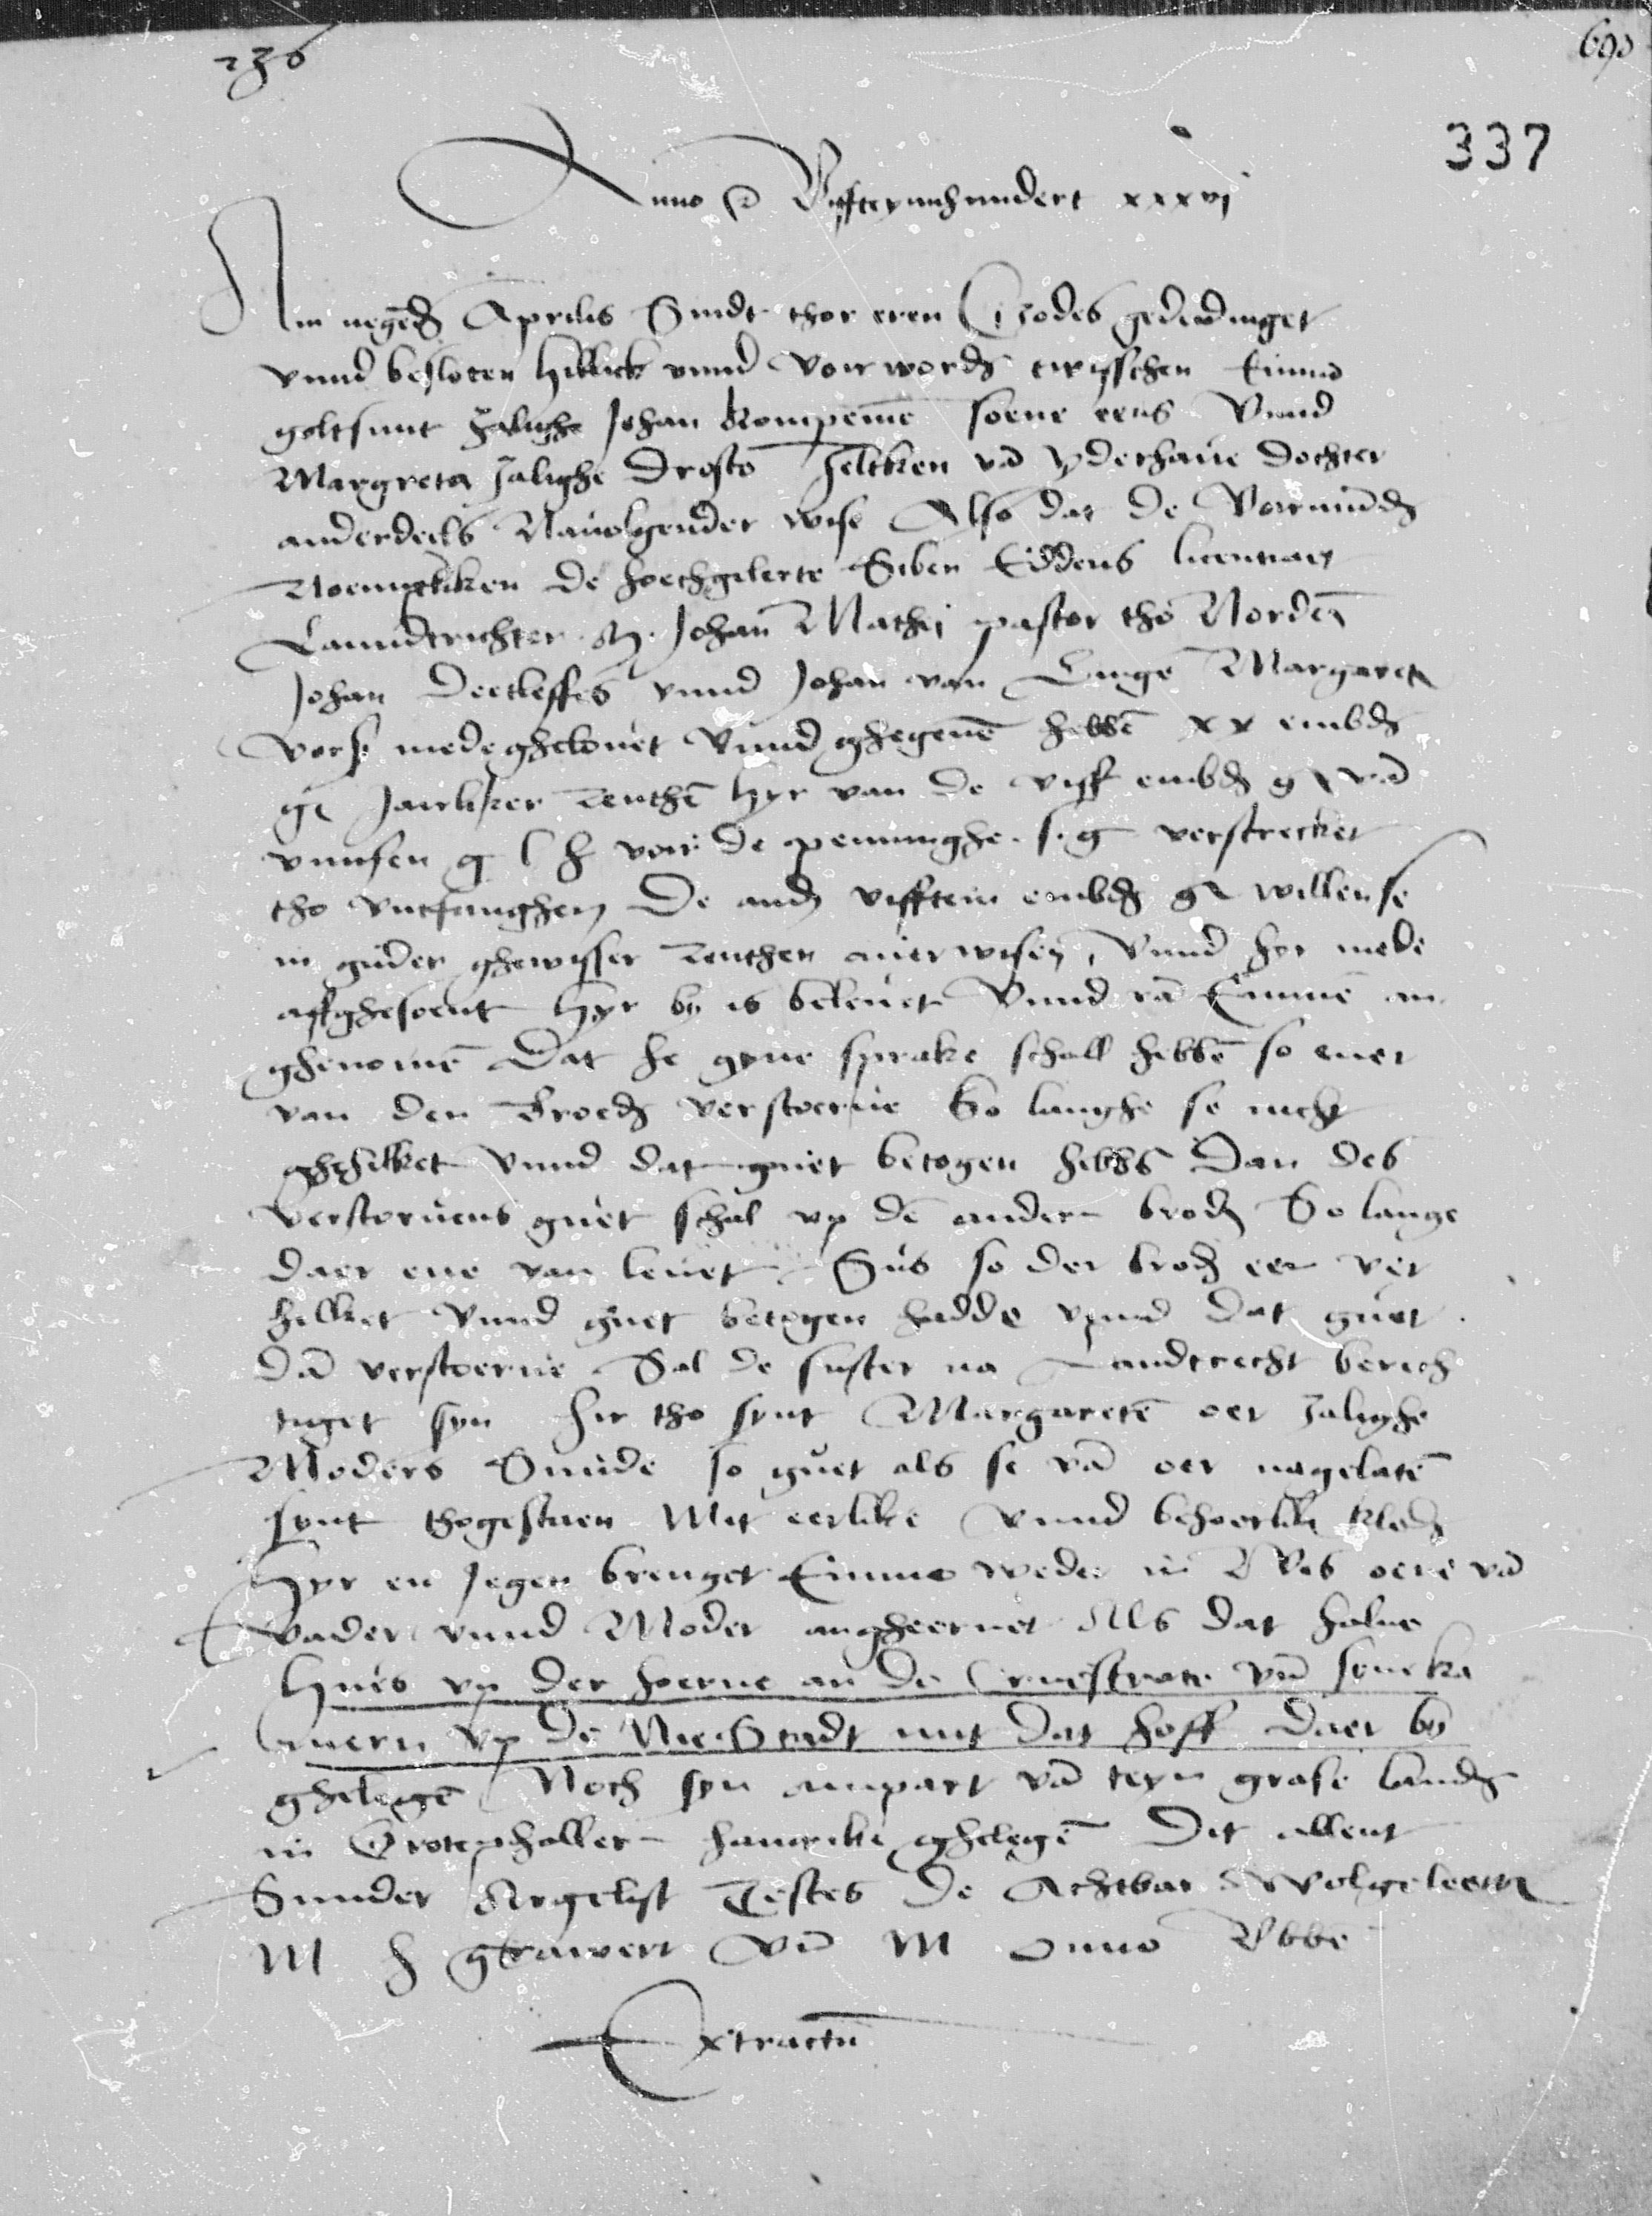 236
690
337
Anno Vyffteynhundert xxxvj
Am negeden Aprilis Sindt thor eren Godes gededinget
vnnd besloten hillick vnnd vorworden twysschen Emmo
goltsmit zalighe Johan Kompen soene eens Vnnd
Margreta zalighe Drosto Heltken vā vderhaue dochter
anderdeels Nauolgender wise Also dat de Vormūden
Noemptliken de hoechgelerte Siben Eddens licentiat
Lanndtrichter H. Johan Mathej pastor tho Norden
Johan Deetleffes vnnd Johan van Linge Margareta
vors. mede ghelouet Vnnd ghegeuē hebbē xx embd
gl Jarliker Renthē hyr van de viff embd gl vā
vnnsen g l h vor de penninghe s. g verstrecket
tho vntfanghen De andn vifftein embd gl willen se
in guder ghewysser Renthen auerwisen, Vnnd hyr mede
affghesoent hyr by is beleuet Vnnd vā Emmē an
ghenomē Dat he gene sprake schall hebbē so ener
van den Broedn verstoerue So langhe se nicht
ghehilket Vnnd dat guet betogen hebbē Dan des
verstoruens guet schal vp dē anderen broder So lange
daer ene van leuet Sus so der broder een ver
hilket Vnnd guet betogen hadde vnnd dat guet
dā verstoerue Sal de suster na Landtrecht berech
tiget syn Hir tho synt Margaretē oer zalighe
Moders Smide so guet als se vā oer nagelatē
synt thogestaen Mit eerlike Vnnd behoerlike kleder
Hyr en Jegen brenget Emmo weder in Wes oene vā
Vader vnnd Moder angheeruet Als dat halue
hues vp der hoerne an de strate vn̄ sine ka
meren vp de Nie Stadt mit dat hoff daer by
ghelegē Noch syn anpart vā teyn grase landes
in hamrike ghelegē Dit allent
Sunder Argelist Testes De Achtbar Wolgeleerte
M H vn̄ M Onno Vbbē
Extractū